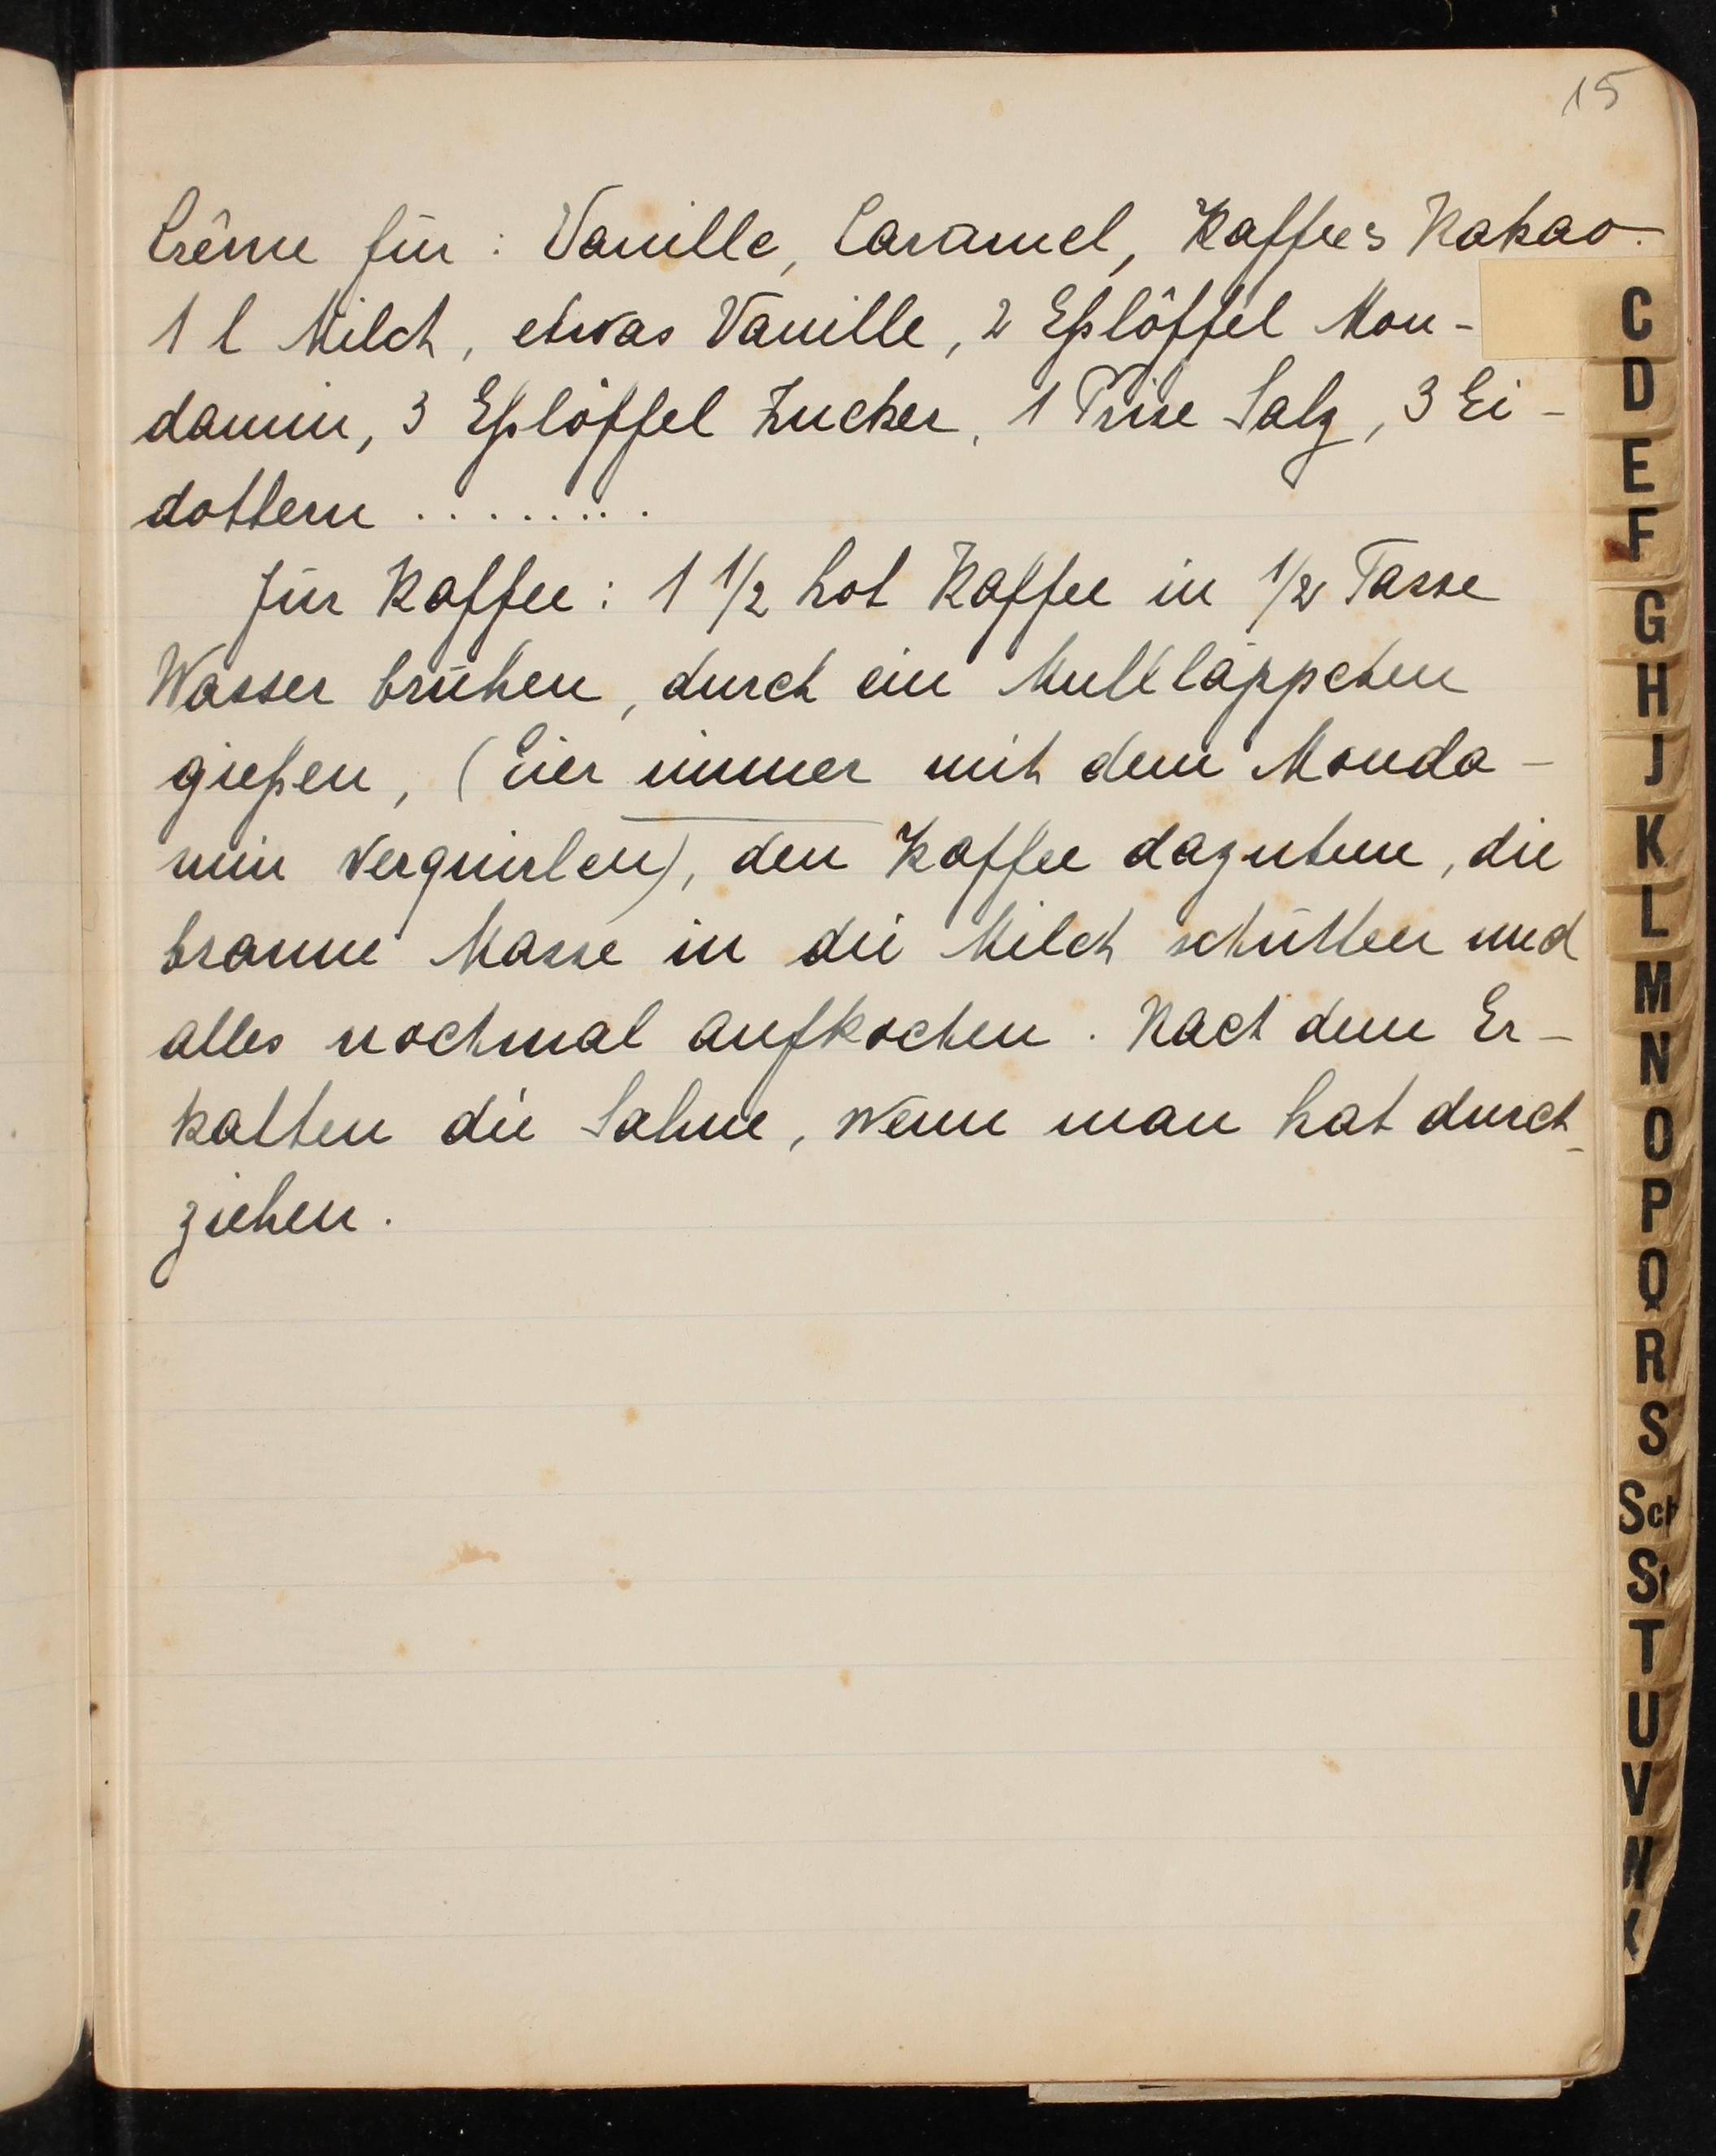 15
Crême für: Vanille, Caramel, Kaffee, Kakao.
1 l Milch, etwas Vanille, 2 Eßlöffel Mon-
damin, 3 Eßlöffel Zucker, 1 Prise Salz, 3 Ei-
dottern .........
Für Kaffee: 1 1/2 Lot Kaffee in 1/2 Tasse
Wasser brühen, durch ein Mullläppchen
gießen, (Eier immer mit dem Monda-
min verquirlen), den Kaffee dazutun, die
braune Masse in die Milch schütten und
alles nochmal aufkochen. Nach dem Er-
kalten die Sahne, wenn man hat durch-
ziehen.
C
D
E
F
G
H
J
K
L
M
N
O
P
Q
R
S
Sch
St
T
U
V